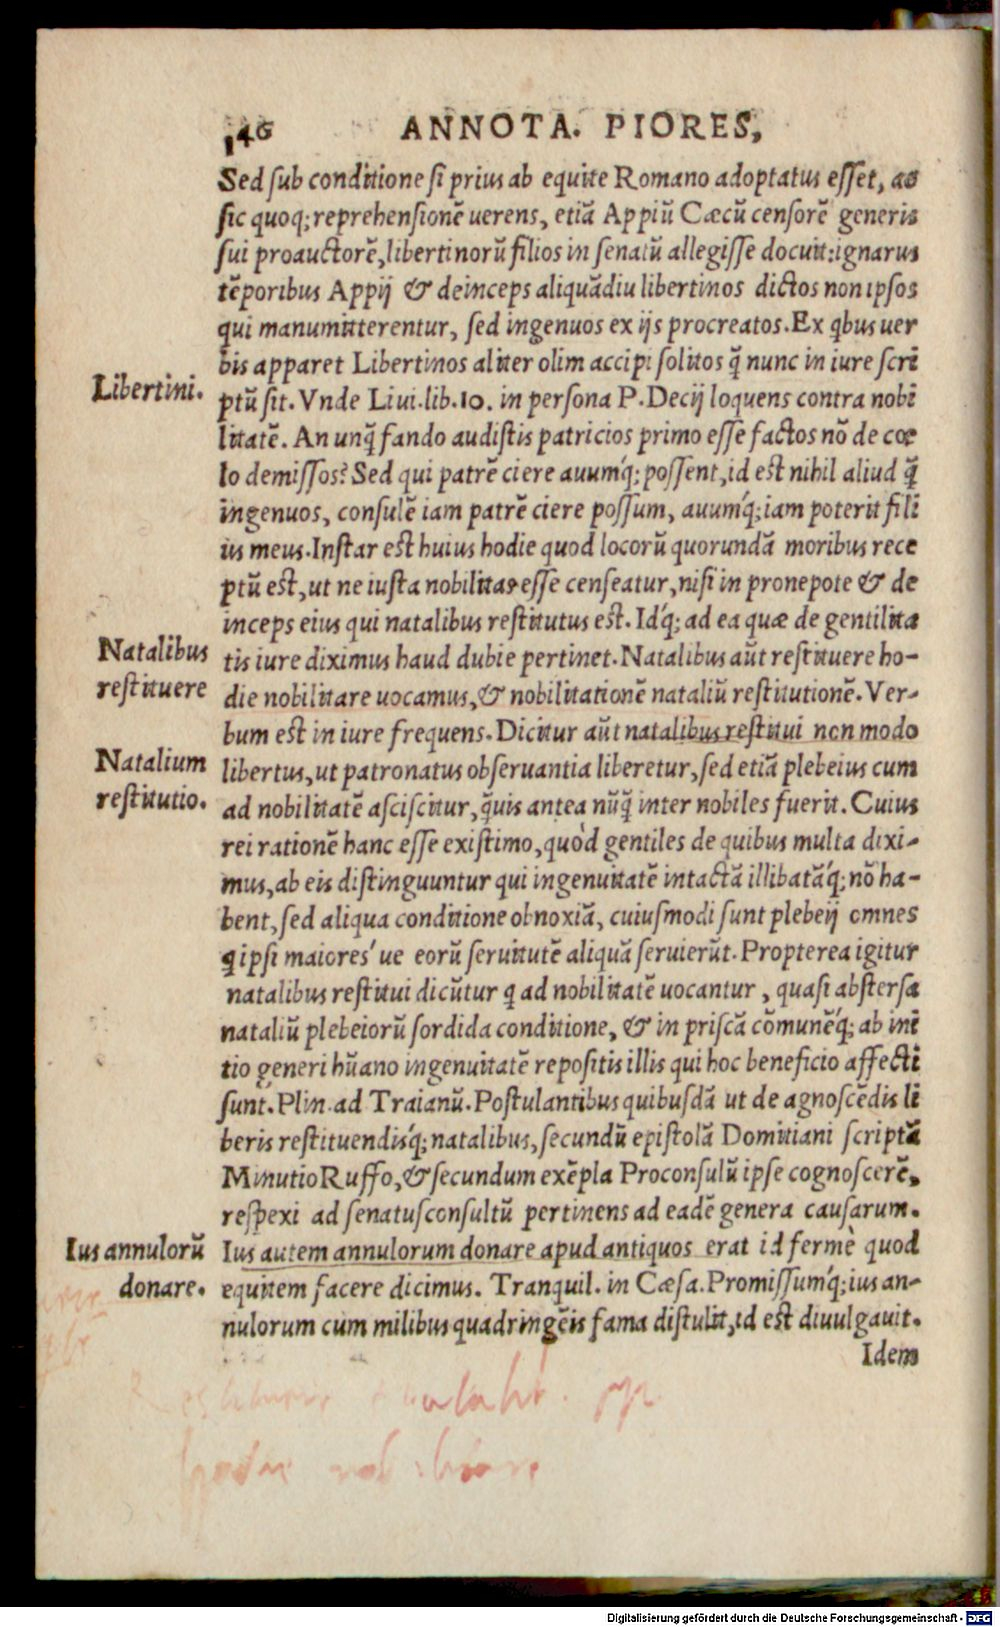 146 ANNOTA. PIORES,
Sed sub conditione si prius ab equite Romano adoptatus esset, ac
sic quoq; reprehensionē uerens, etiā Appiū Cæcū censorē generis
sui proauctorē, libertinorū filios in senatū allegisse docuit: ignarus
tēporibus Appij & deinceps aliquādiu libertinos dictos non ipsos
qui manumitterentur, sed ingenuos ex ijs procreatos. Ex q̄bus uer
bis apparet Libertinos aliter olim accipi solitos q̄ nunc in iure scri
Libertini.
ptū sit. Vnde Liui. lib. 10. in persona P. Decij loquens contra nobi
litatē. An unq̄ fando audistis patricios primo esse factos nō de cœ
lo demissos? Sed qui patrē ciere auumq́; possent, id est nihil aliud q̄
ingenuos, consulē iam patrē ciere possum, auumq́; iam poterit fili
us meus. Instar est huius hodie quod locorū quorundā moribus rece
ptū est, ut ne iusta nobilitas esse censeatur, nisi in pronepote & de
inceps eius qui natalibus restitutus est. Idq́; ad ea quæ de gentilita
Natalibus
restituere
tis iure diximus haud dubie pertinet. Natalibus aūt restituere ho-
die nobilitare uocamus, & nobilitationē nataliū restitutionē. Ver-
bum est in iure frequens. Dicitur aūt natalibus restitui non modo
Natalium
restitutio.
libertus, ut patronatus obseruantia liberetur, sed etiā plebeius cum
ad nobilitatē asciscitur, q̄uis antea nūq̄ inter nobiles fuerit. Cuius
rei rationē hanc esse existimo, quòd gentiles de quibus multa dixi-
mus, ab eis distinguuntur qui ingenuitatē intactā illibatāq́; nō ha-
bent, sed aliqua conditione obnoxiā, cuiusmodi sunt plebeij omnes
q ipsi maiores´ue eorū seruitutē aliquā seruierūt. Propterea igitur
natalibus restitui dicūtur q ad nobilitatē uocantur, quasi abstersa
nataliū plebeiorū sordida conditione, & in priscā cōmunēq́; ab ini
tio generi hūano ingenuitatē repositis illis qui hoc beneficio affecti
sunt. Plin. ad Traianū. Postulantibus quibusdā ut de agnoscēdis li
beris restituendisq́; natalibus, secundū epistolā Domitiani scriptā
Minutio Ruffo, & secundum exēpla Proconsulū ipse cognoscerē,
respexi ad senatusconsultū pertinens ad eadē genera causarum.
Ius annulorū
donare.
Ius autem annulorum donare apud antiquos erat id fermè quod
equitem facere dicimus. Tranquil. in Cæsa. Promissumq́; ius an-
nulorum cum milibus quadringēis fama distulit, id est diuulgauit.
Idem
Digitalisierung gefördert durch die Deutsche Forschungsgemeinschaft - DFG